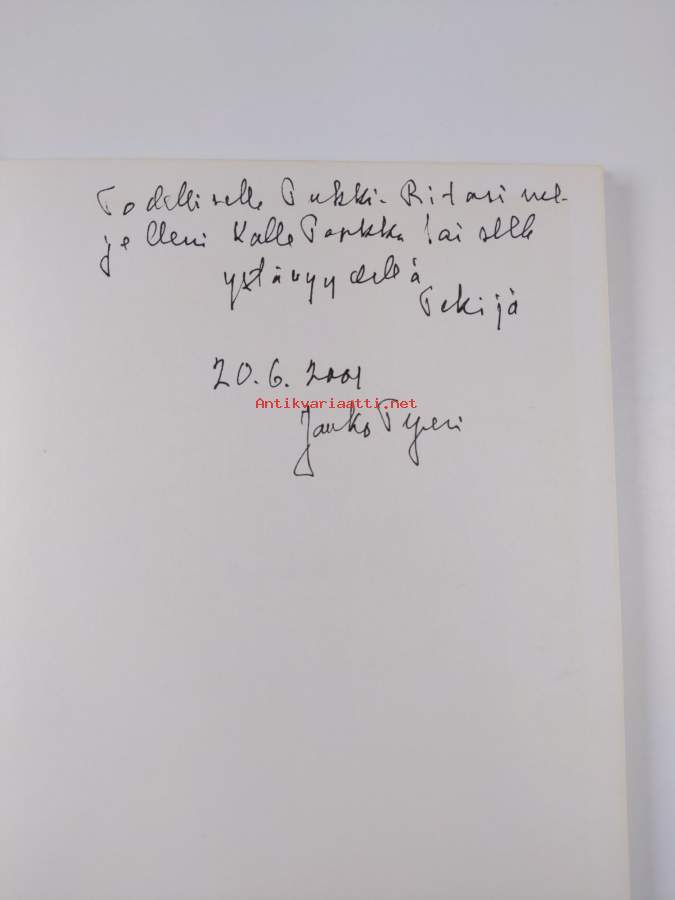 Todelliselle Tukki-Ritari vel-
jelleni Kalle
ystävyydellä
Tekijä
20.6.2001
Antikvariaatti.net
Jauko Tyyri